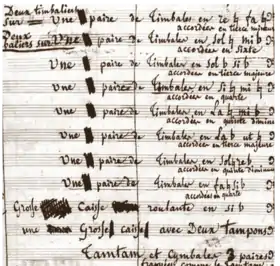 Deux timbaliers
sur Une paire de Timbales en re ♮ fa ♮
accordées en tierce mineure
Deux
baliers sur Une paire de Timbales en sol ♮ mi ♭
accordées en sixte
Une paire de Timbales en sol ♭ si ♭
accordées en tierce majeure
Une paire de Timbales en si ♮ mi ♮
accordées en quarte
Une paire de Timbales en la ♭ mi ♭
accordées en quinte diminu
Une paire de Timbales en la ♭ ut ♮
accordées en tierce majeure
Une paire de Timbales en sol ♮ re ♭
accordées en quinte diminu
Une paire de Timbales en fa ♮ si ♭
accordées en quarte
Grosse Caisse roulante en si ♭
une Grosse caisse avec Deux tampons
Tamtam et Cymbales 3 paires